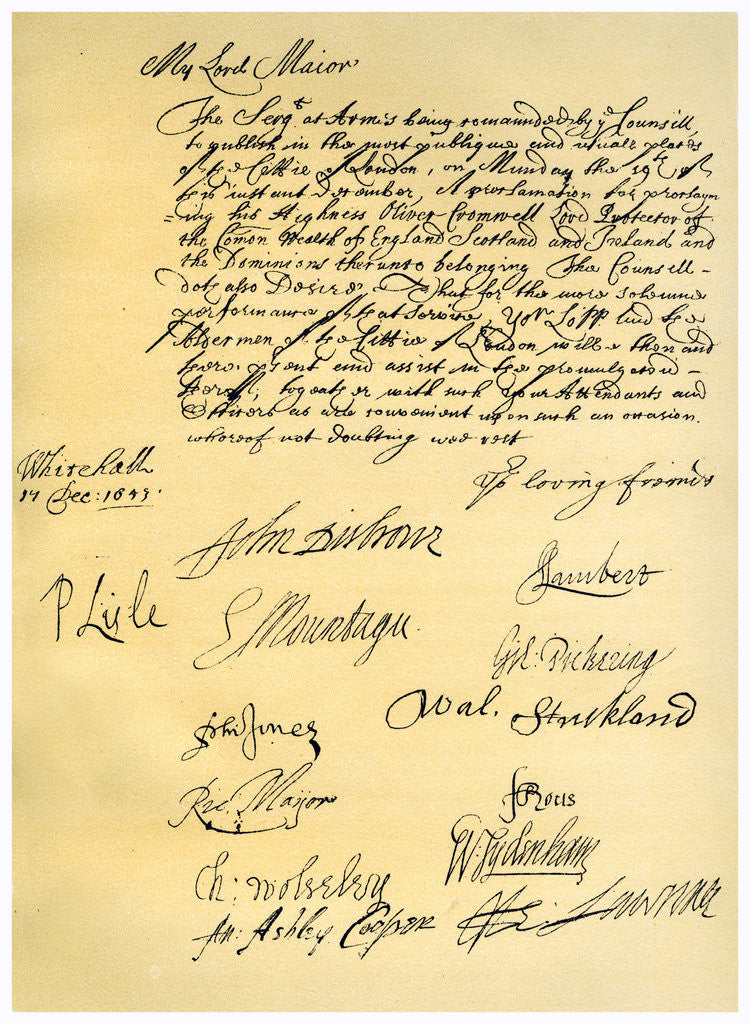 My Lord Maior
The Sergt at Armes being comaunded by ye Counsill,
to publish in the most publique and usuall places
of the Cittie of London, on Munday the 19th of
this instant December, A proclamation for proclaym
=ing his Highness Oliver Cromwell Lord Protector of
the Comon Wealth of England Scotland and Ireland and
the Dominions therunto belonging The Counsell -
doth also Desire. That for the more solemne
performance of that service, Yor Lopp and the
Aldermen of the Cittie of London will be then and
there p'sent and assist in the promulgacon -
thereof, togeather with such your Attendants and
Officers as are convenient upon such an occasion.
whereof not doubting wee rest
Whitehall
17 Dec: 1653.
Yor loving freinds
John Disbrowe
Lambert
P Lisle
E Mountagu
Gil: Pickering
Wal. Strickland
Phi Jones
Ric. Maijor
F Rous
W: Sydenham
Ch: Wolseley
An: Ashley Cooper
He: Lawrence